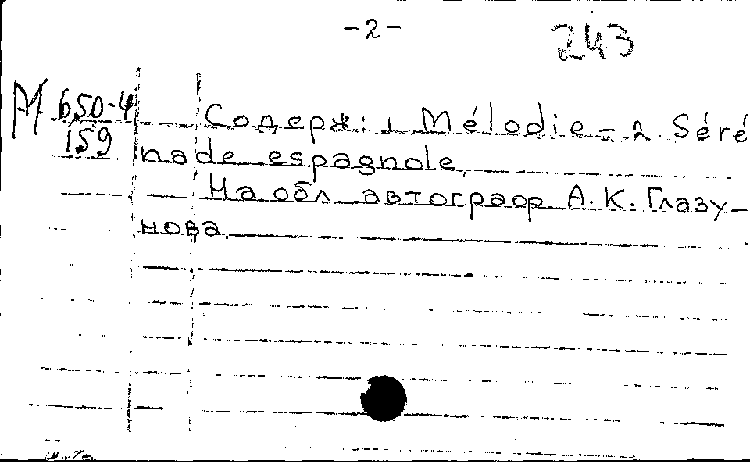 -2-
243
М 650-4
159
Содерж: 1 Mélodie – 2. Séré
nade espagnole.
На обл автограф А.К. Глазу-
нова